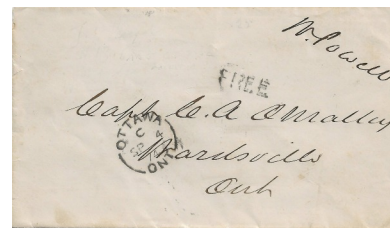 W. Powell
FREE
Capt. C. A. O'Malley
OTTAWA
ONT
Wardsville
Ont